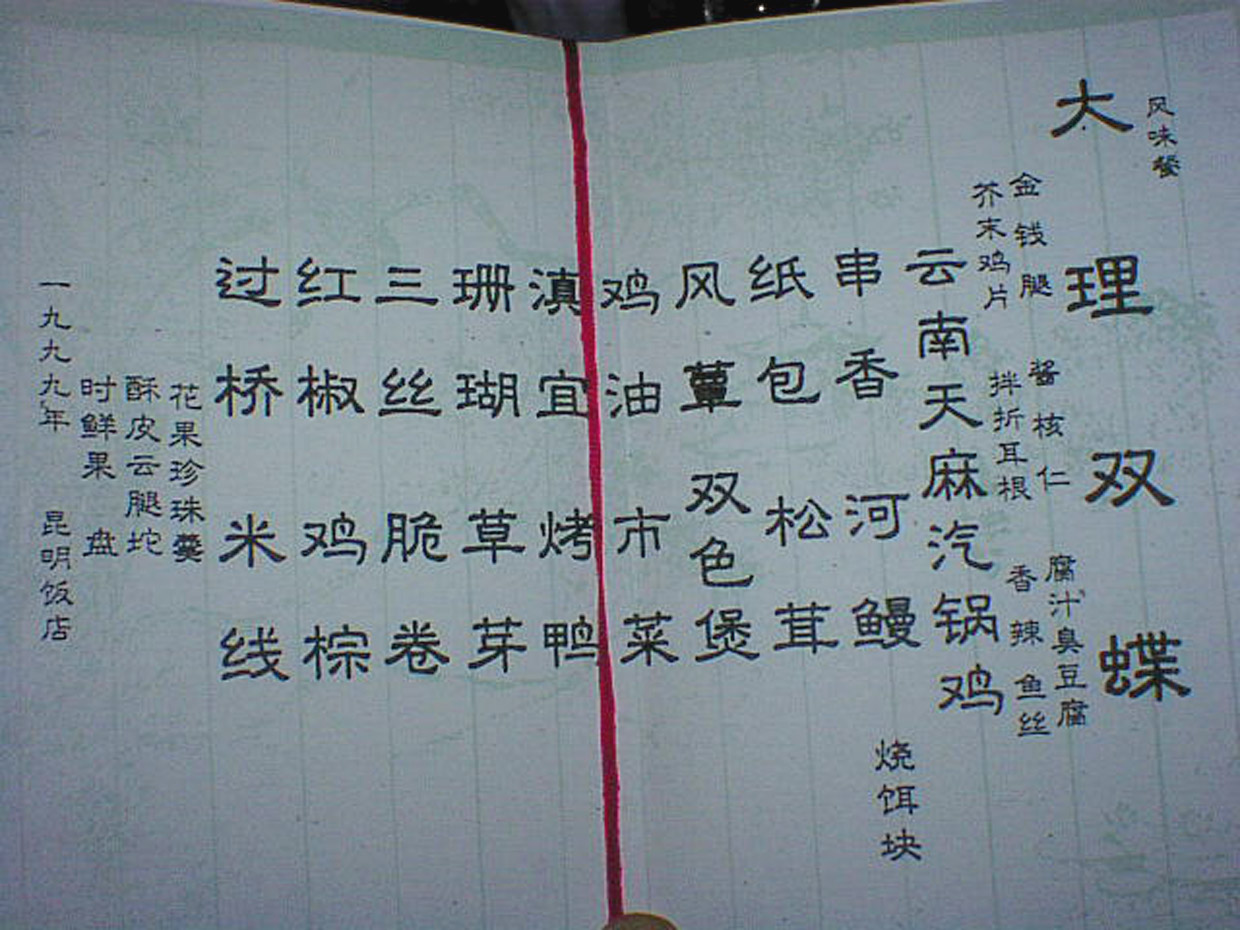 风味餐
大理双蝶
金钱腿
酱核仁
腐汁臭豆腐
芥末鸡片
拌折耳根
香辣鱼丝
云南天麻汽锅鸡
串香河鳗
烧饵块
纸包松茸
风蕈双色煲
鸡油市菜
滇宜烤鸭
珊瑚草芽
三丝脆卷
红椒鸡棕
过桥米线
花果珍珠羹
酥皮云腿坨
时鲜果盘
一九九九年 昆明饭店